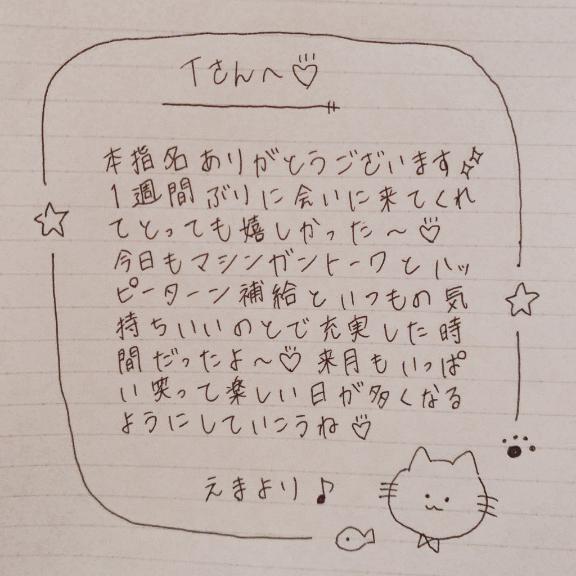 Tさんへ♡
本指名ありがとうございます
1週間ぶりに会いに来てくれ
てとっても嬉しかった〜♡
今日もマシンガントークとハッ
ピーターン補給といつもの気
持ちいいのとで充実した時
間だったよ〜♡ 来月もいっぱ
い笑って楽しい日が多くなる
ようにしていこうね♡
えまより♪